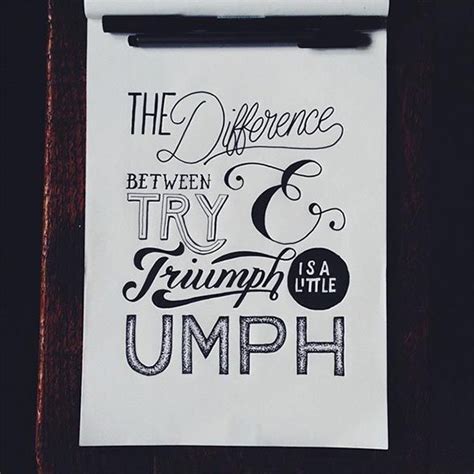 THE Difference
BETWEEN
TRY &
Triumph IS A LITTLE
UMPH